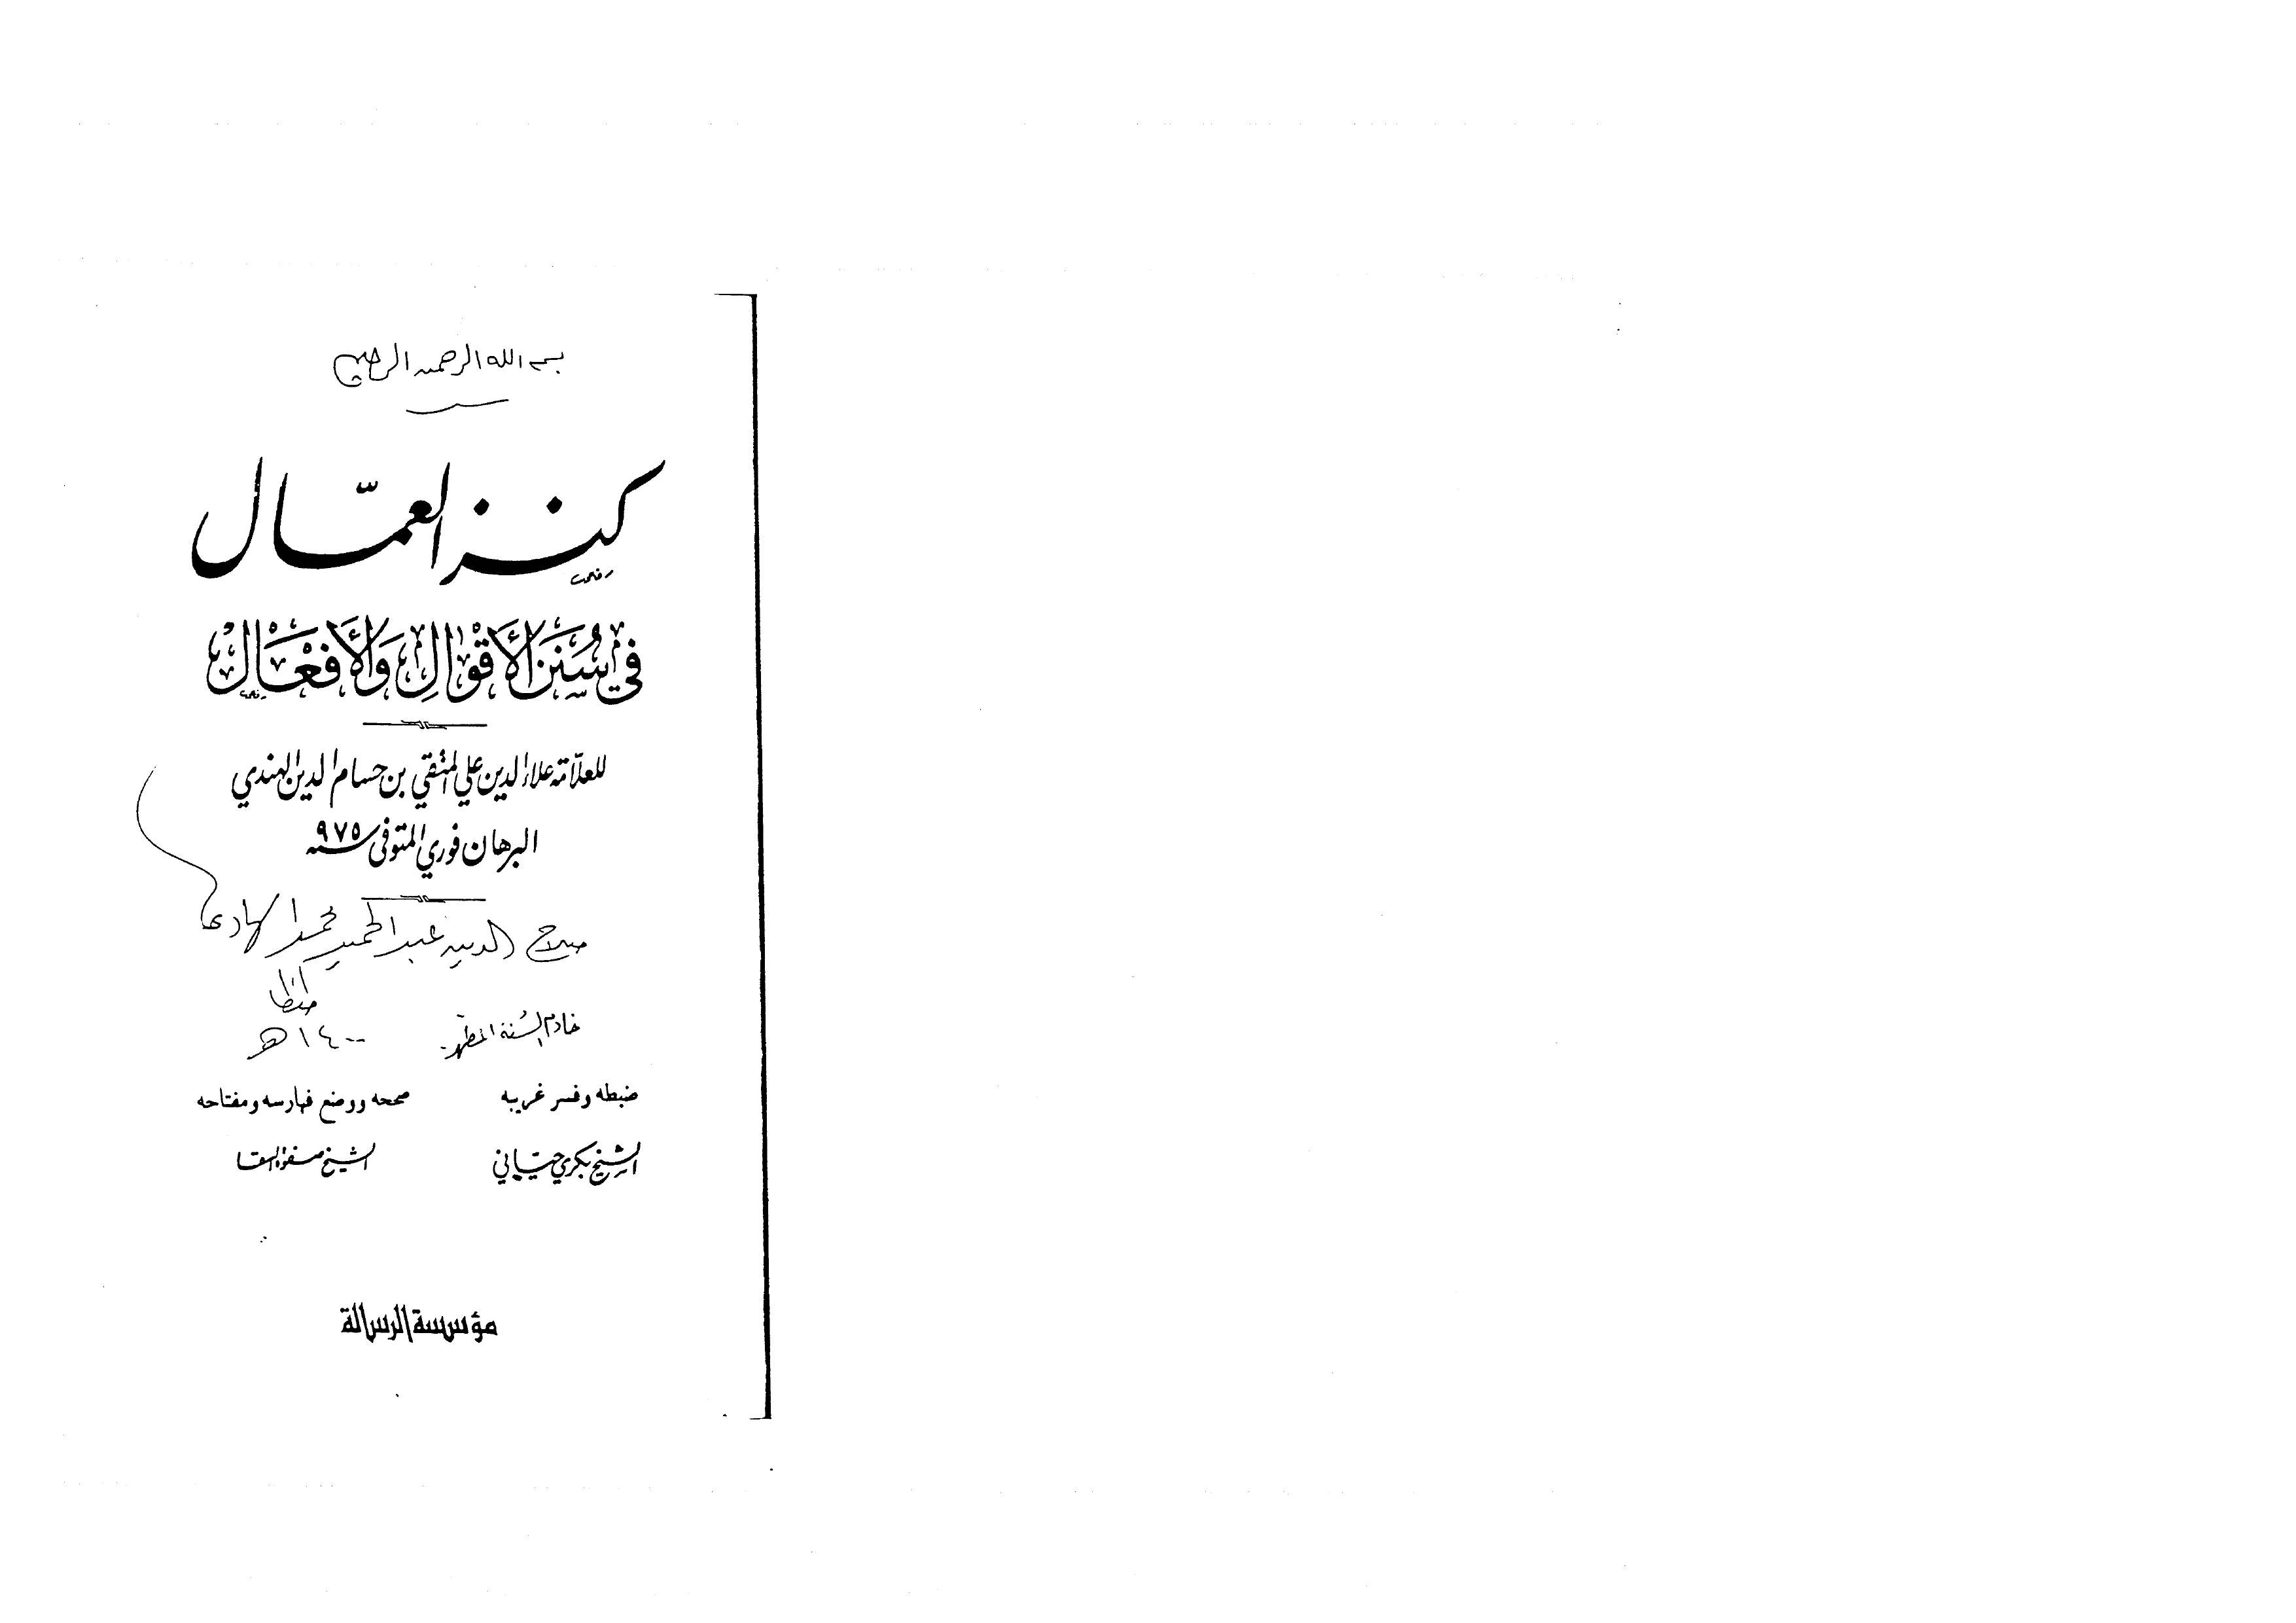 بسم الله الرحمن الرحيم
كنز العمّال
في سنن الأقوال والأفعال
للعلّامة علاء الدين علي المتقي بن حسام الدين الهندي
البرهان فوري المتوفى سنة ٩٧٥
صلاح الدين عبد الحميد محمد الهادى
خادم السُنة المطهرة
١٤٠٠ هـ
ضبطه وفسر غريبه
صححه ووضع فهارسه ومفتاحه
الشيخ بكري حيّاني
الشيخ صفوة السقا
مؤسسة الرسالة